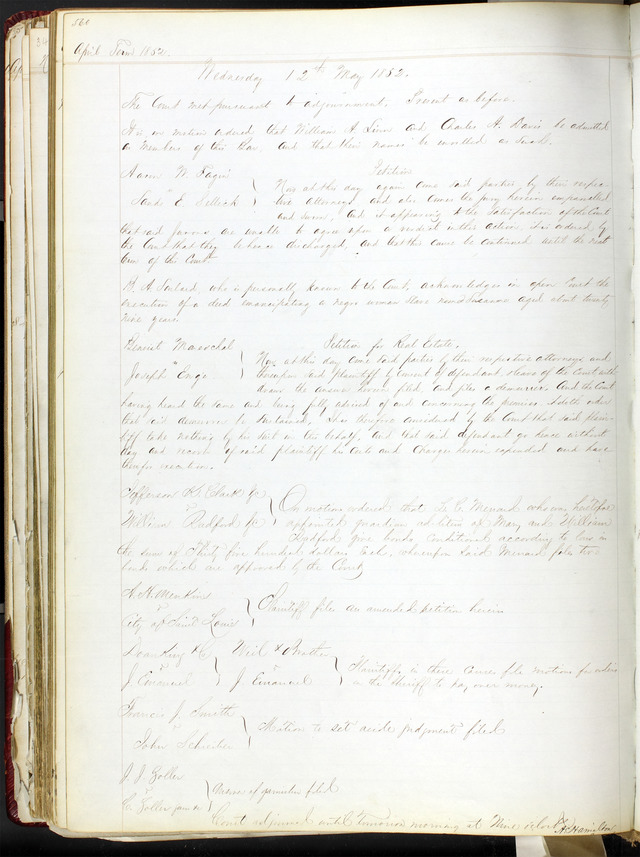 560
April Term 1852.
Wednesday 12th May 1852.
The Court met pursuant to adjournment. Present as before.
It is on motion ordered that William A Linn and Charles H. Davis be admitted
as Members of this Bar, and that their names be enrolled as such.
Aaron W. Fagin Petition
vs Now at this day again come said parties by their respec-
E. Selleck tive attorneys and also comes the jury herein impannelled
and sworn, and it appearing to the satisfaction of the Court
that said Jurors are unable to agree upon a verdict in this action it is ordered by
the Court that they be hence discharged, and that this cause be continued until the next
term of the Court
B. A. Soulard, who is personally known to the Court, acknowledges in open Court the
execution of a deed emancipating a negro woman slave named Susanne aged about twenty
nine years
Mareschal Petition for Real Estate.
vs Now at this day come said parties by their respective attorneys and
Joseph thereupon said plaintiff by consent of defendant & leave of the Court with
draws the answer herein filed and files a demurrer. And the Court
having heard the same and being fully advised of and concerning the premises doth order
that said demurrer be sustained. It is therefore considered by the Court that said plain-
tiff take nothing by his suit in this behalf, and that said defendant go hence without
day and recover of said plaintiff his costs and charges herein expended and have
therefor execution.
Jefferson K. Clark &c
vs On motion ordered that L. C. Menard who was heretofore
William Radford &c appointed guardian ad litem of Mary and William
Radford give bonds, conditioned according to law in
the sum of Thirty five hundred dollars each, whereupon said Menard files two
bonds which are approved by the Court
A. H. Menkens
vs Plaintiff files an amended petition herein
City of Saint Louis
&c Weil & Brother
vs vs Plaintiffs in these causes file motions for orders
J. Emanuel J Emanuel on the Sheriff to pay over money.
Francis J. Smith
vs Motion to set aside judgment filed
John Schreiber
J. J. Zoller
vs Answer of garnishee filed
C. Zoller
Court adjourned until tomorrow morning at Nine o'clock
A. Hamilton